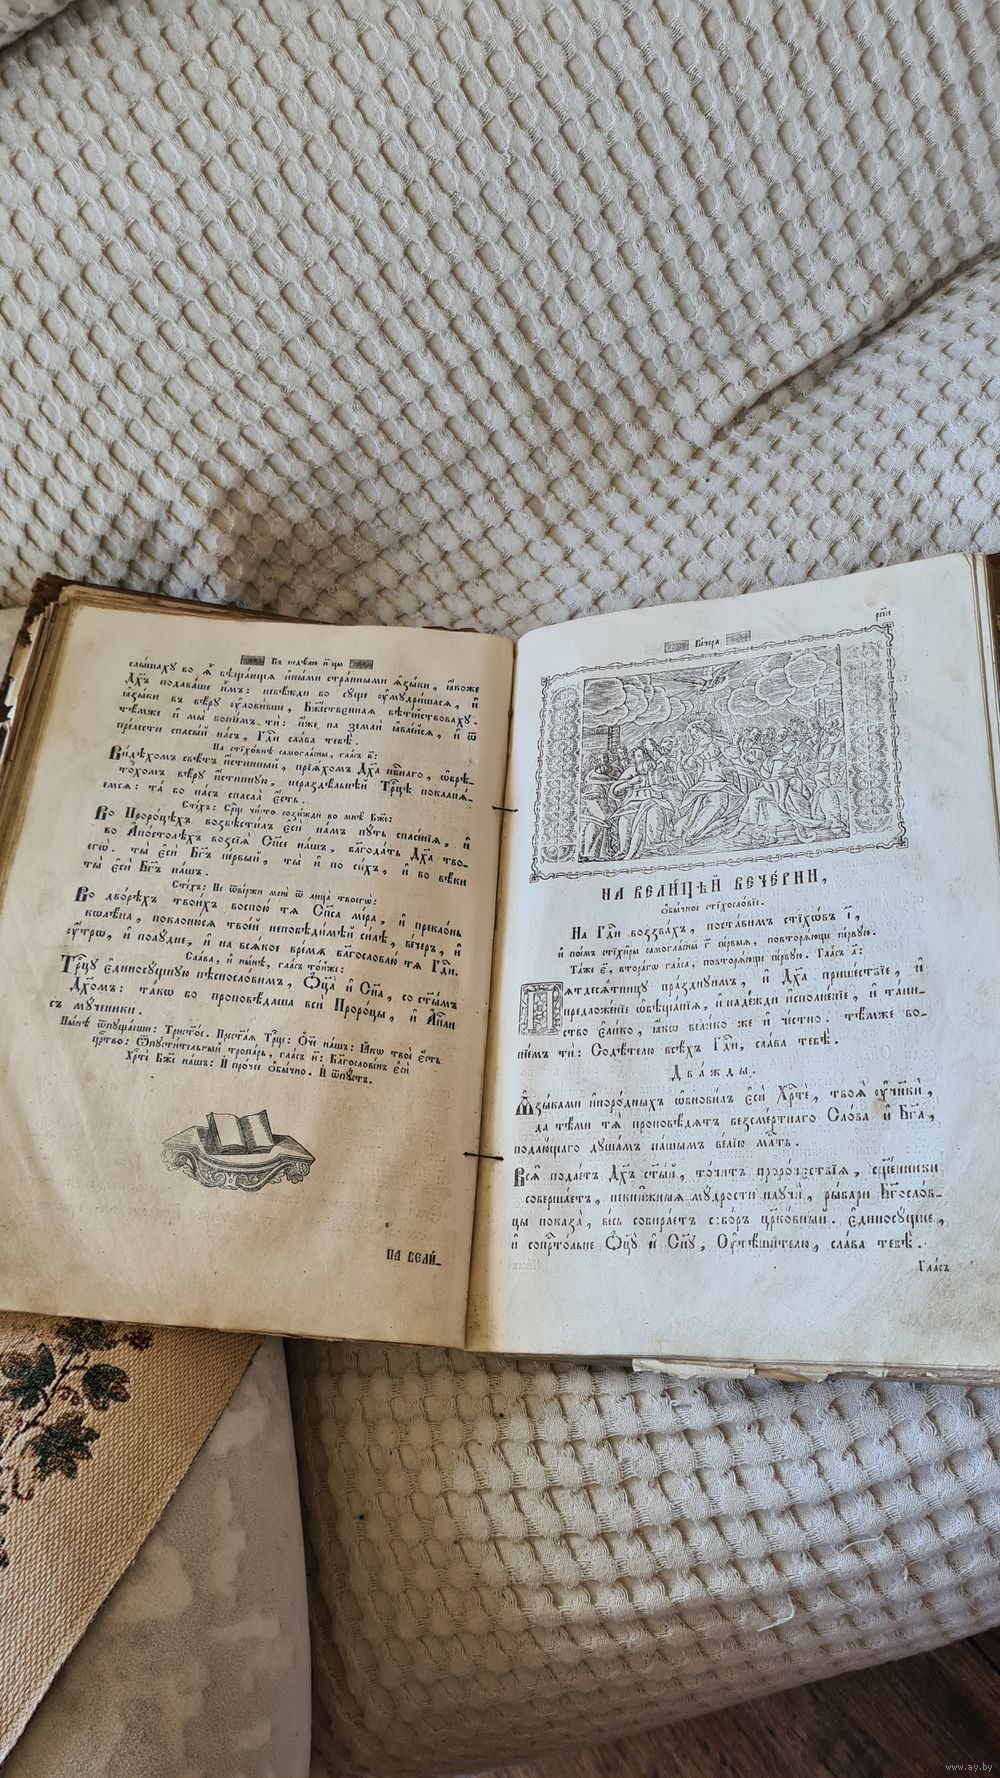 Въ недѣлю н҃ цы
слы́шаху во ᾿ѧ҆ вѣща́ющѧ и҆ны́ми стра́нными ꙗ҆зы́ки, ꙗ҆́коже
Дх҃ъ подава́ше и҆̀мъ:
ꙗ҆зы́ки въ вѣ́ру оу҆лови́вше, Бж҃е́ственнаѧ вѣті́йствоваху.
тѣ́мже и҆ мы̀ вопіе́мъ тѝ: и҆́же на землѝ ꙗ҆ви́йсѧ, и҆ ѿ
пре́лести спасы́й на́съ, Гдⷭ҇и сла́ва тебѣ̀.
На стїхо́внѣ самогла́сны, гла́съ в҃:
Ви́дѣхомъ свѣ́тъ и҆́стинный, прїѧ́хомъ Дх҃а нбⷭ҇наго, ѡ҆брѣ-
то́хомъ вѣ́ру и҆́стинную, неразде́льнѣй Трⷪ҇цѣ покланѧ́-
емсѧ: та́ бо на́съ спасла̀ є҆́сть.
Сті́хъ: Се́рдце чи́сто сози́жди во мнѣ̀ Бж҃е:
Во Проро́цѣхъ возвѣсти́лъ є҆сѝ на́мъ пу́ть спасе́нїѧ, и҆
во А҆по́столѣхъ возсїѧ̀ Сп҃се на́шъ, блгⷣа́ть Дх҃а тво-
егѡ̀. ты̀ є҆сѝ Бг҃ъ пе́рвый, ты̀ и҆ по си́хъ, и҆ во вѣ́ки
ты̀ є҆сѝ Бг҃ъ на́шъ.
Сті́хъ: Не ѿве́ржи менѐ ѿ лица̀ твоегѡ̀:
Во дво́рѣхъ твои́хъ воспою̀ тѧ̀ Сп҃са мі́ра, и҆ прекло́нь
колѣ́на, поклоню́сѧ твое́й непобѣди́мѣй си́лѣ, ве́черъ, и҆
оу҆́трѡ, и҆ полу́дне, и҆ на всѧ́кое вре́мѧ блгⷭ҇ловлю̀ тѧ̀ Гдⷭ҇и.
Сла́ва, и҆ ны́нѣ, гла́съ то́йже:
Трⷪ҇цу є҆диносу́щную пѣсносло́вимъ, Ѻ҆ц҃а̀ и҆ Сн҃а, со ст҃ы́мъ
Дх҃омъ: та́кѡ во проповѣ́даша всѝ Проро́цы, и҆ А҆пⷭ҇ли
съ мꙋ́ченики.
Ны́нѣ ѿпуща́еши: Трист҃о́е. Прест҃а́ѧ Трⷪ҇це: Ѻ҆́ч҃е на́шъ: Ꙗ҆́кѡ твоѐ є҆́сть
црⷭ҇тво: Ѿпусти́тельный тропа́рь, гла́съ и҃: Блгⷭ҇лове́нъ є҆сѝ
Хрⷭ҇тѐ Бж҃е на́шъ: И҆ про́чее ѻ҆бы́чно. И҆ ѿпу́стъ.
НА ВЕЛИ́-
Ве́чера
рг҃і
НА ВЕЛИ́ЦѢЙ ВЕЧЕ́РНИ,
ѻ҆бы́чное стїхосло́вїе.
На Гдⷭ҇и воззва́хъ, поста́вимъ стїхѡ́въ і҃,
и҆ пое́мъ стїхи́ры самогла́сны г҃ пе́рвыѧ, повторѧ́юще пе́рвую.
Та́же є҃, втора́гѡ гла́са, повторѧ́юще пе́рвую. Гла́съ а҃:
Пѧтдесѧ́тницу пра́зднуимъ, и҆ Дх҃а прише́ствїе, и҆
предложе́нїе ѡ҆бѣща́нїѧ, и҆ наде́жди и҆сполне́нїе, и҆ та́ин-
ство є҆ли́ко, ꙗ҆́кѡ вели́ко же и҆ че́стно. тѣ́мже во-
пїе́мъ тѝ: Содѣ́телю всѣ́хъ Гдⷭ҇и, сла́ва тебѣ̀.
Два́жды.
Ѧ҆зы́ками и҆норо́дныхъ ѡ҆бнови́лъ є҆сѝ Хрⷭ҇тѐ, твоѧ̀ оу҆чн҃кѝ,
да тѣ́ми тѧ̀ проповѣ́дѧтъ безсме́ртнаго Сло́ва и҆ Бг҃а,
подаю́щаго душа́мъ на́шымъ ве́лїю млⷭ҇ть.
Всѧ̑ подае́тъ Дх҃ъ ст҃ы́й, то́читъ проро́чествїѧ, сщ҃е́нники
соверша́етъ, некни́жныѧ му́дрости научѝ, рыбарѝ Бг҃осло́в-
цы показа̀, ве́сь собира́етъ собо́ръ црк҃о́вный. є҆диносу́щне,
и҆ сопрⷭ҇то́льне Ѻ҆ц҃у̀ и҆ Сн҃у, Оу҆тѣ́шителю, сла́ва тебѣ̀.
Гла́съ
www.ay.by